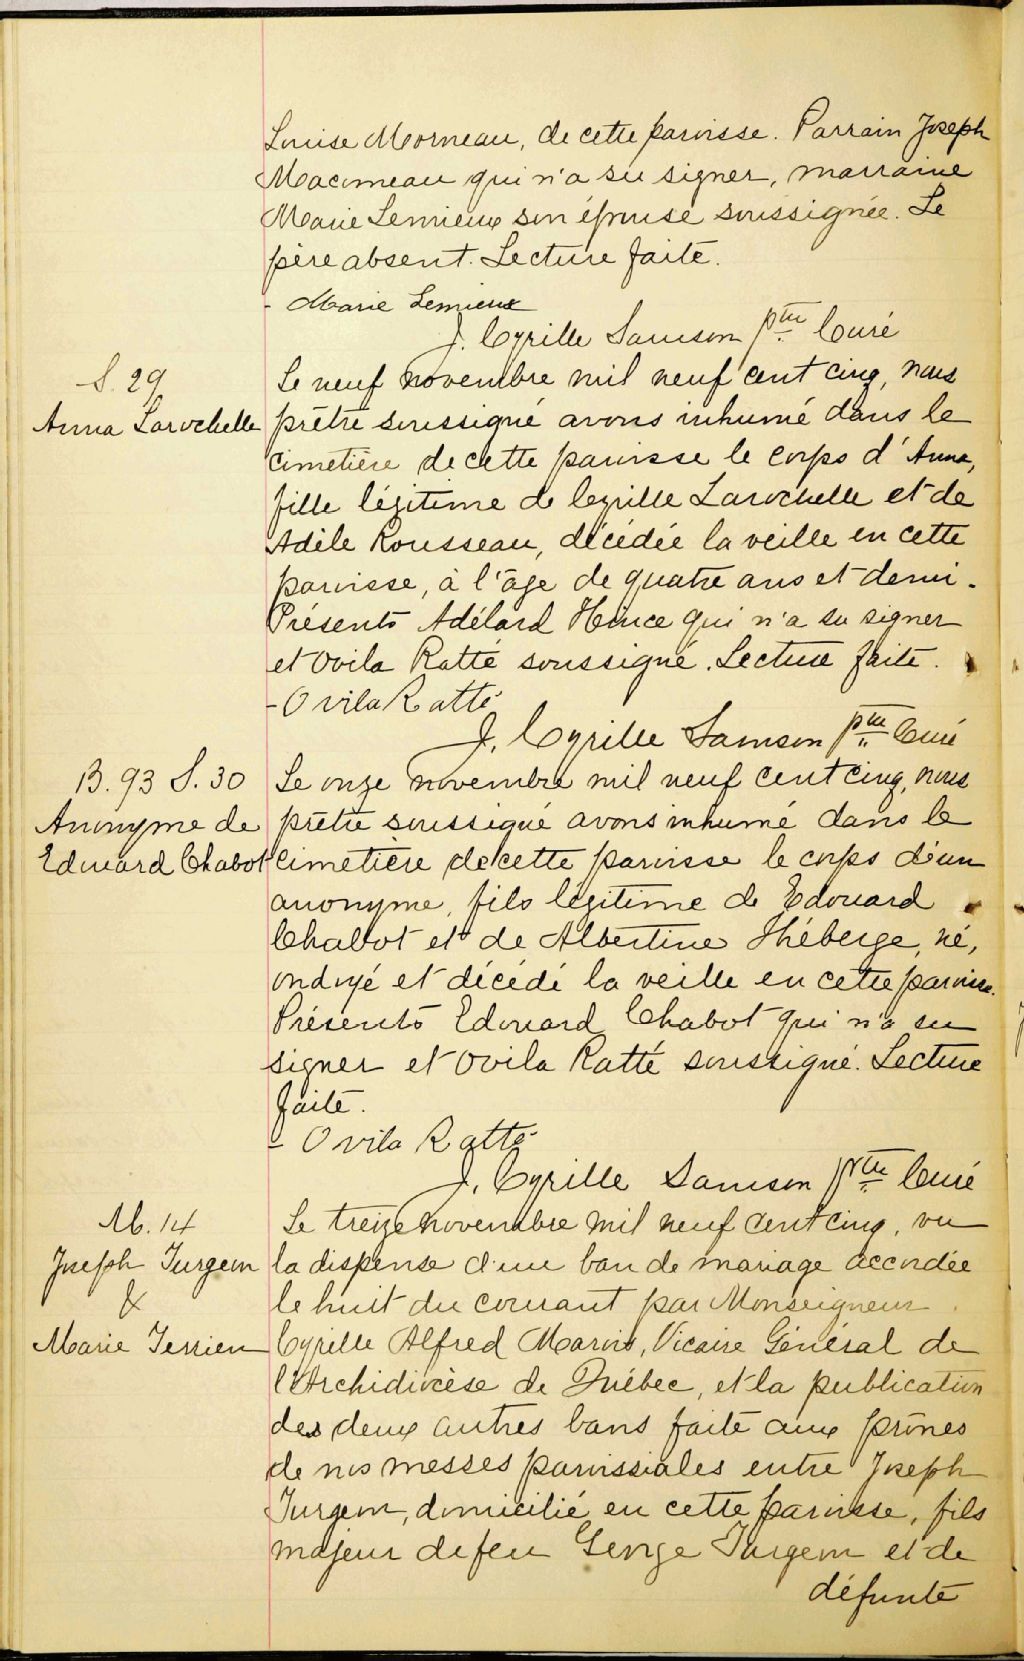 Louise Morneau, de cette paroisse. Parrain Joseph
Macomeau qui n'a su signer, marraine
Marie Lemieux son épouse soussignée. Le
père absent. Lecture faite.
- Marie Lemieux
J. Cyrille Samson ptre Curé
S. 29
Anna Larochelle
Le neuf novembre mil neuf cent cinq, nous
prêtre soussigné avons inhumé dans le
cimetière de cette paroisse le corps d'Anna,
fille légitime de Cyrille Larochelle et de
Adèle Rousseau, décédée la veille en cette
paroisse, à l'âge de quatre ans et demi.
Présents Adélard Hince qui n'a su signer
et Ovila Ratté soussigné. Lecture faite.
- Ovila Ratté
J. Cyrille Samson ptre Curé
B. 93 S. 30
Anonyme de
Edouard Chabot
Le onze novembre mil neuf cent cinq, nous
prêtre soussigné avons inhumé dans le
cimetière de cette paroisse le corps d'un
anonyme, fils légitime de Edouard
Chabot et de Albertine Théberge, né,
ondoyé et décédé la veille en cette paroisse.
Présents Edouard Chabot qui n'a su
signer et Ovila Ratté soussigné. Lecture
faite.
- Ovila Ratté
J. Cyrille Samson ptre Curé
M. 14
Joseph Turgeon
&
Marie Terrien
Le treize novembre mil neuf cent cinq, vu
la dispense d'un ban de mariage accordée
le huit du courant par Monseigneur
Cyrille Alfred Marois, Vicaire Général de
l'Archidiocèse de Québec, et la publication
des deux autres bans faite aux prônes
de nos messes paroissiales entre Joseph
Turgeon, domicilié en cette paroisse, fils
majeur de feu George Turgeon et de
défunte